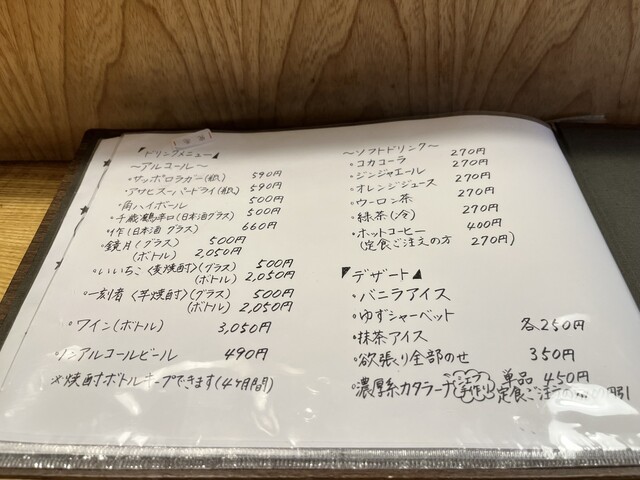 ドリンクメニュー
～アルコール～
・サッポロラガー(瓶) 590円
・アサヒスーパードライ(瓶) 590円
・角ハイボール 500円
・千歳鶴辛口(日本酒グラス) 500円
(日本酒グラス) 660円
・鏡月(グラス) 500円
(ボトル) 2,050円
・いいちこ〈麦焼酎〉(グラス) 500円
(ボトル) 2,050円
・一刻者〈芋焼酎〉(グラス) 500円
(ボトル) 2,050円
・ワイン(ボトル) 3,050円
・ノンアルコールビール 490円
※焼酎ボトルキープできます(4ヶ月間)
～ソフトドリンク～
・コカコーラ 270円
・ジンジャエール 270円
・オレンジジュース 270円
・ウーロン茶 270円
・緑茶(冷) 270円
・ホットコーヒー 400円
(定食ご注文の方 270円)
デザート
・バニラアイス
・ゆずシャーベット
・抹茶アイス 各250円
・欲張り全部のせ 350円
・濃厚系カタラーナ シェフ手作り 単品 450円
定食ご注文の方